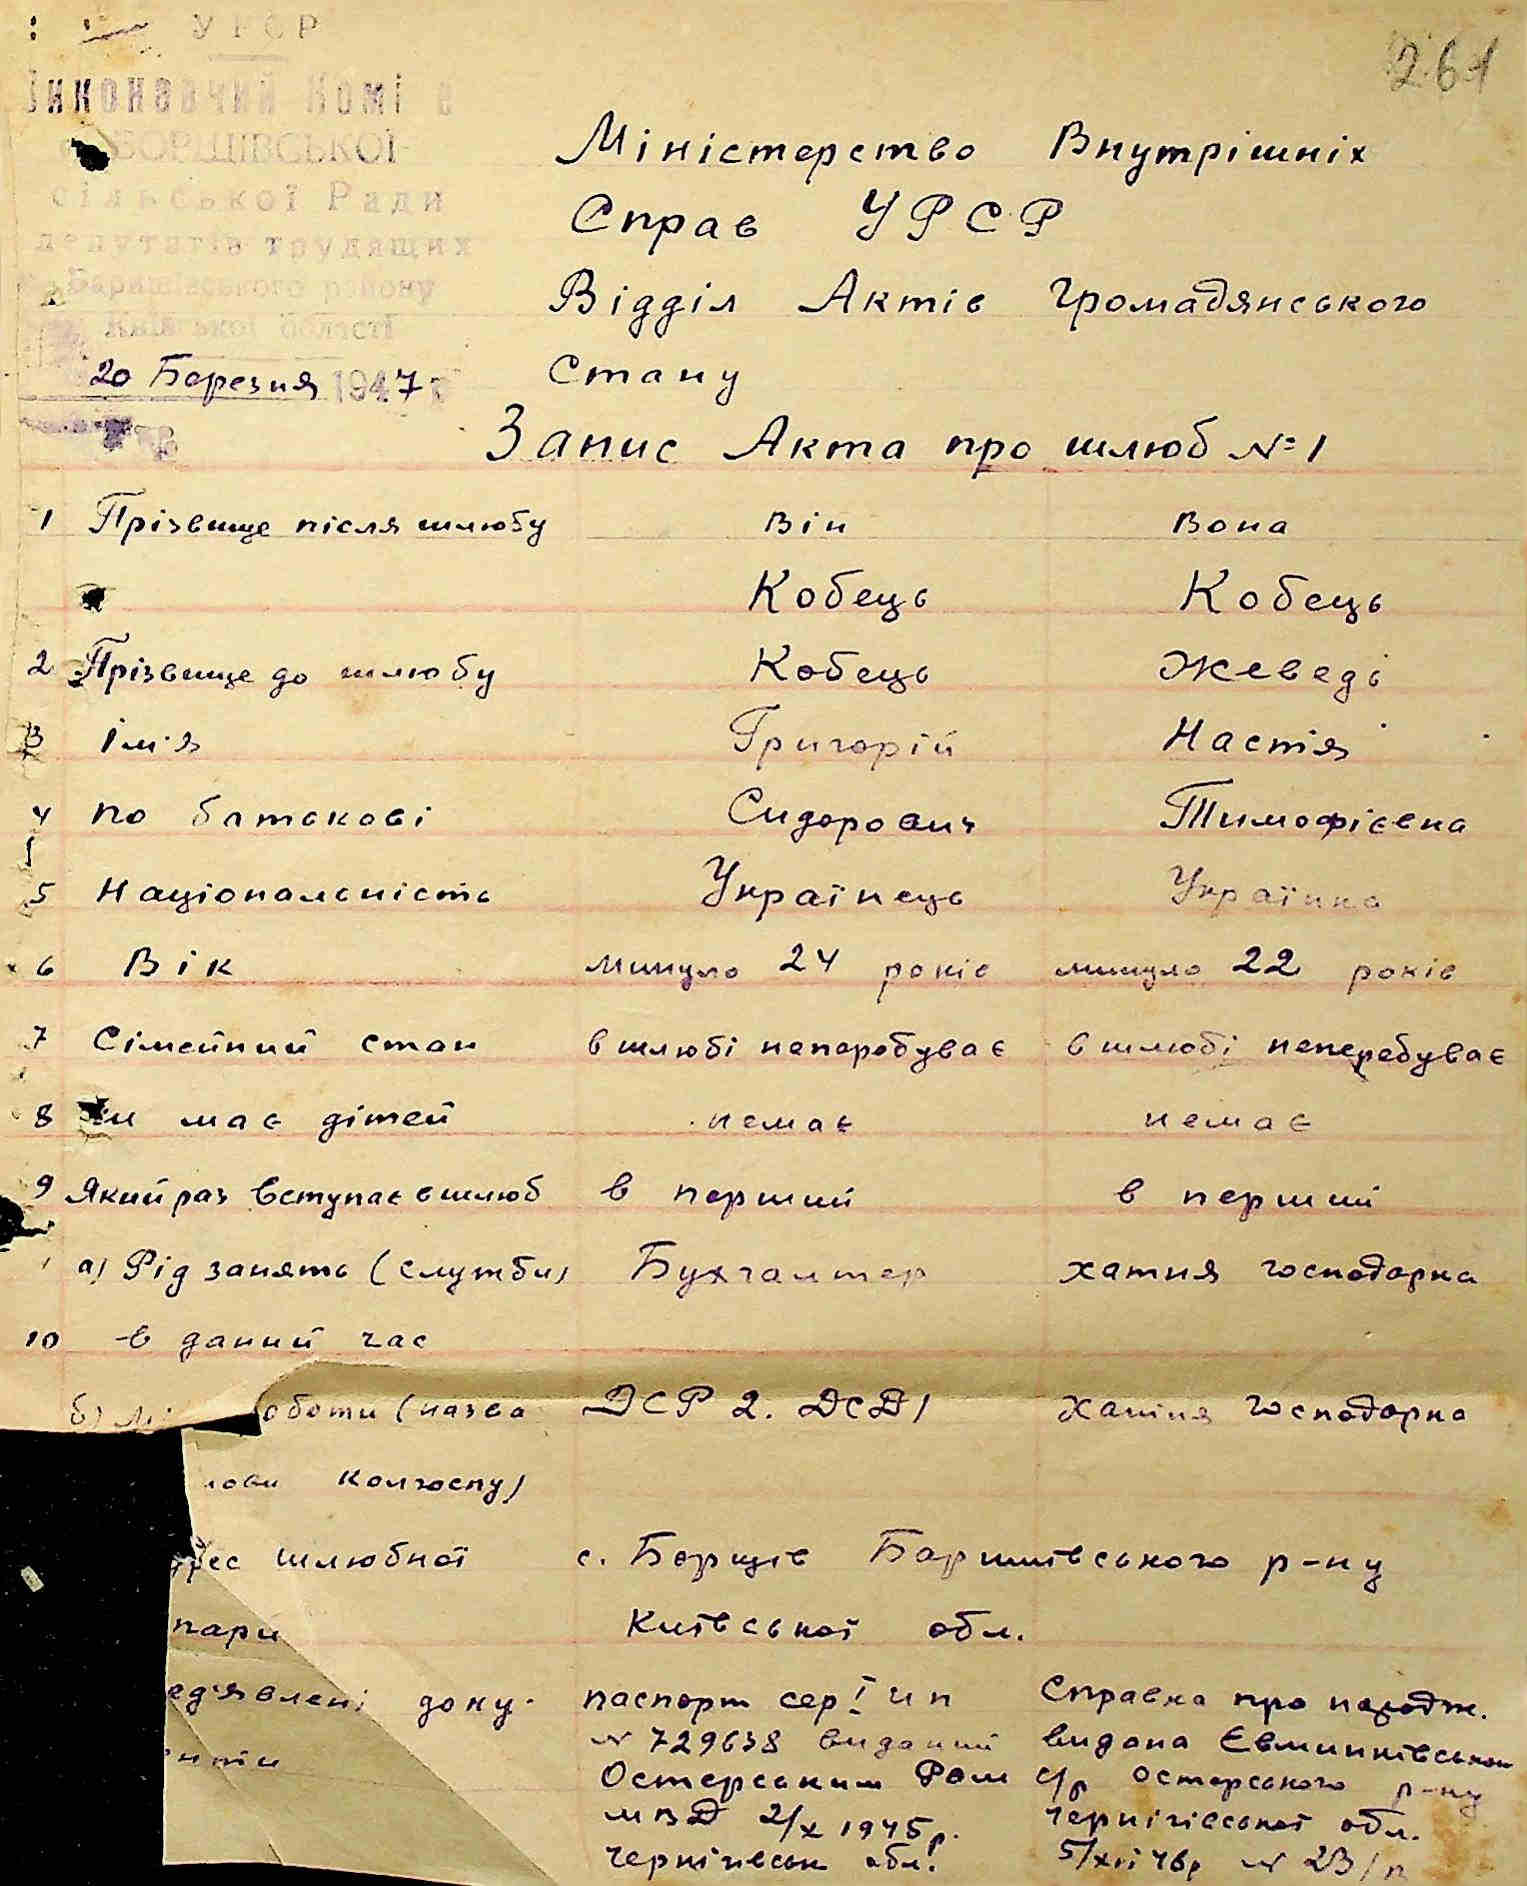 УРСР
261
Виконавчий Комі
БОРЩІВСЬКОЇ
сільської Ради
депутатів трудящих
Баришівського району
Київської області
20 Березня 1947 р
Міністерство Внутрішніх
Справ УРСР
Відділ Актів Громадянського
Стану
Запис Акта про шлюб № 1
1 Прізвище після шлюбу Він Вона
Кобець Кобець
2 Прізвище до шлюбу Кобець Жеведь
3 Ім'я Григорій Настя
4 по батькові Сидорович Тимофієвна
5 Національність Українець Українка
6 Вік минуло 24 років минуло 22 років
7 Сімейний стан в шлюбі неперебуває в шлюбі неперебуває
8 Чи має дітей немає немає
9 Який раз вступає в шлюб в перший в перший
а) Рід занять (служби) Бухгалтер хатня господарка
10 в даний час
б) Мі оботи (назва ДСР 2. ДСД1 Хатня господарка
лови колгоспу)
рес шлюбної с. Борщів Баришівського р-ну
пари Київської обл.
ед'явлені доку- паспорт сер. Справка про народж.
нти № 729638 виданий видана Євминківською
Остерським Ром с/р Остерського р-ну
МВД 2/X 1945 р. Чернігівської обл.
Чернігівськ обл. 5/XII 46р № 23/